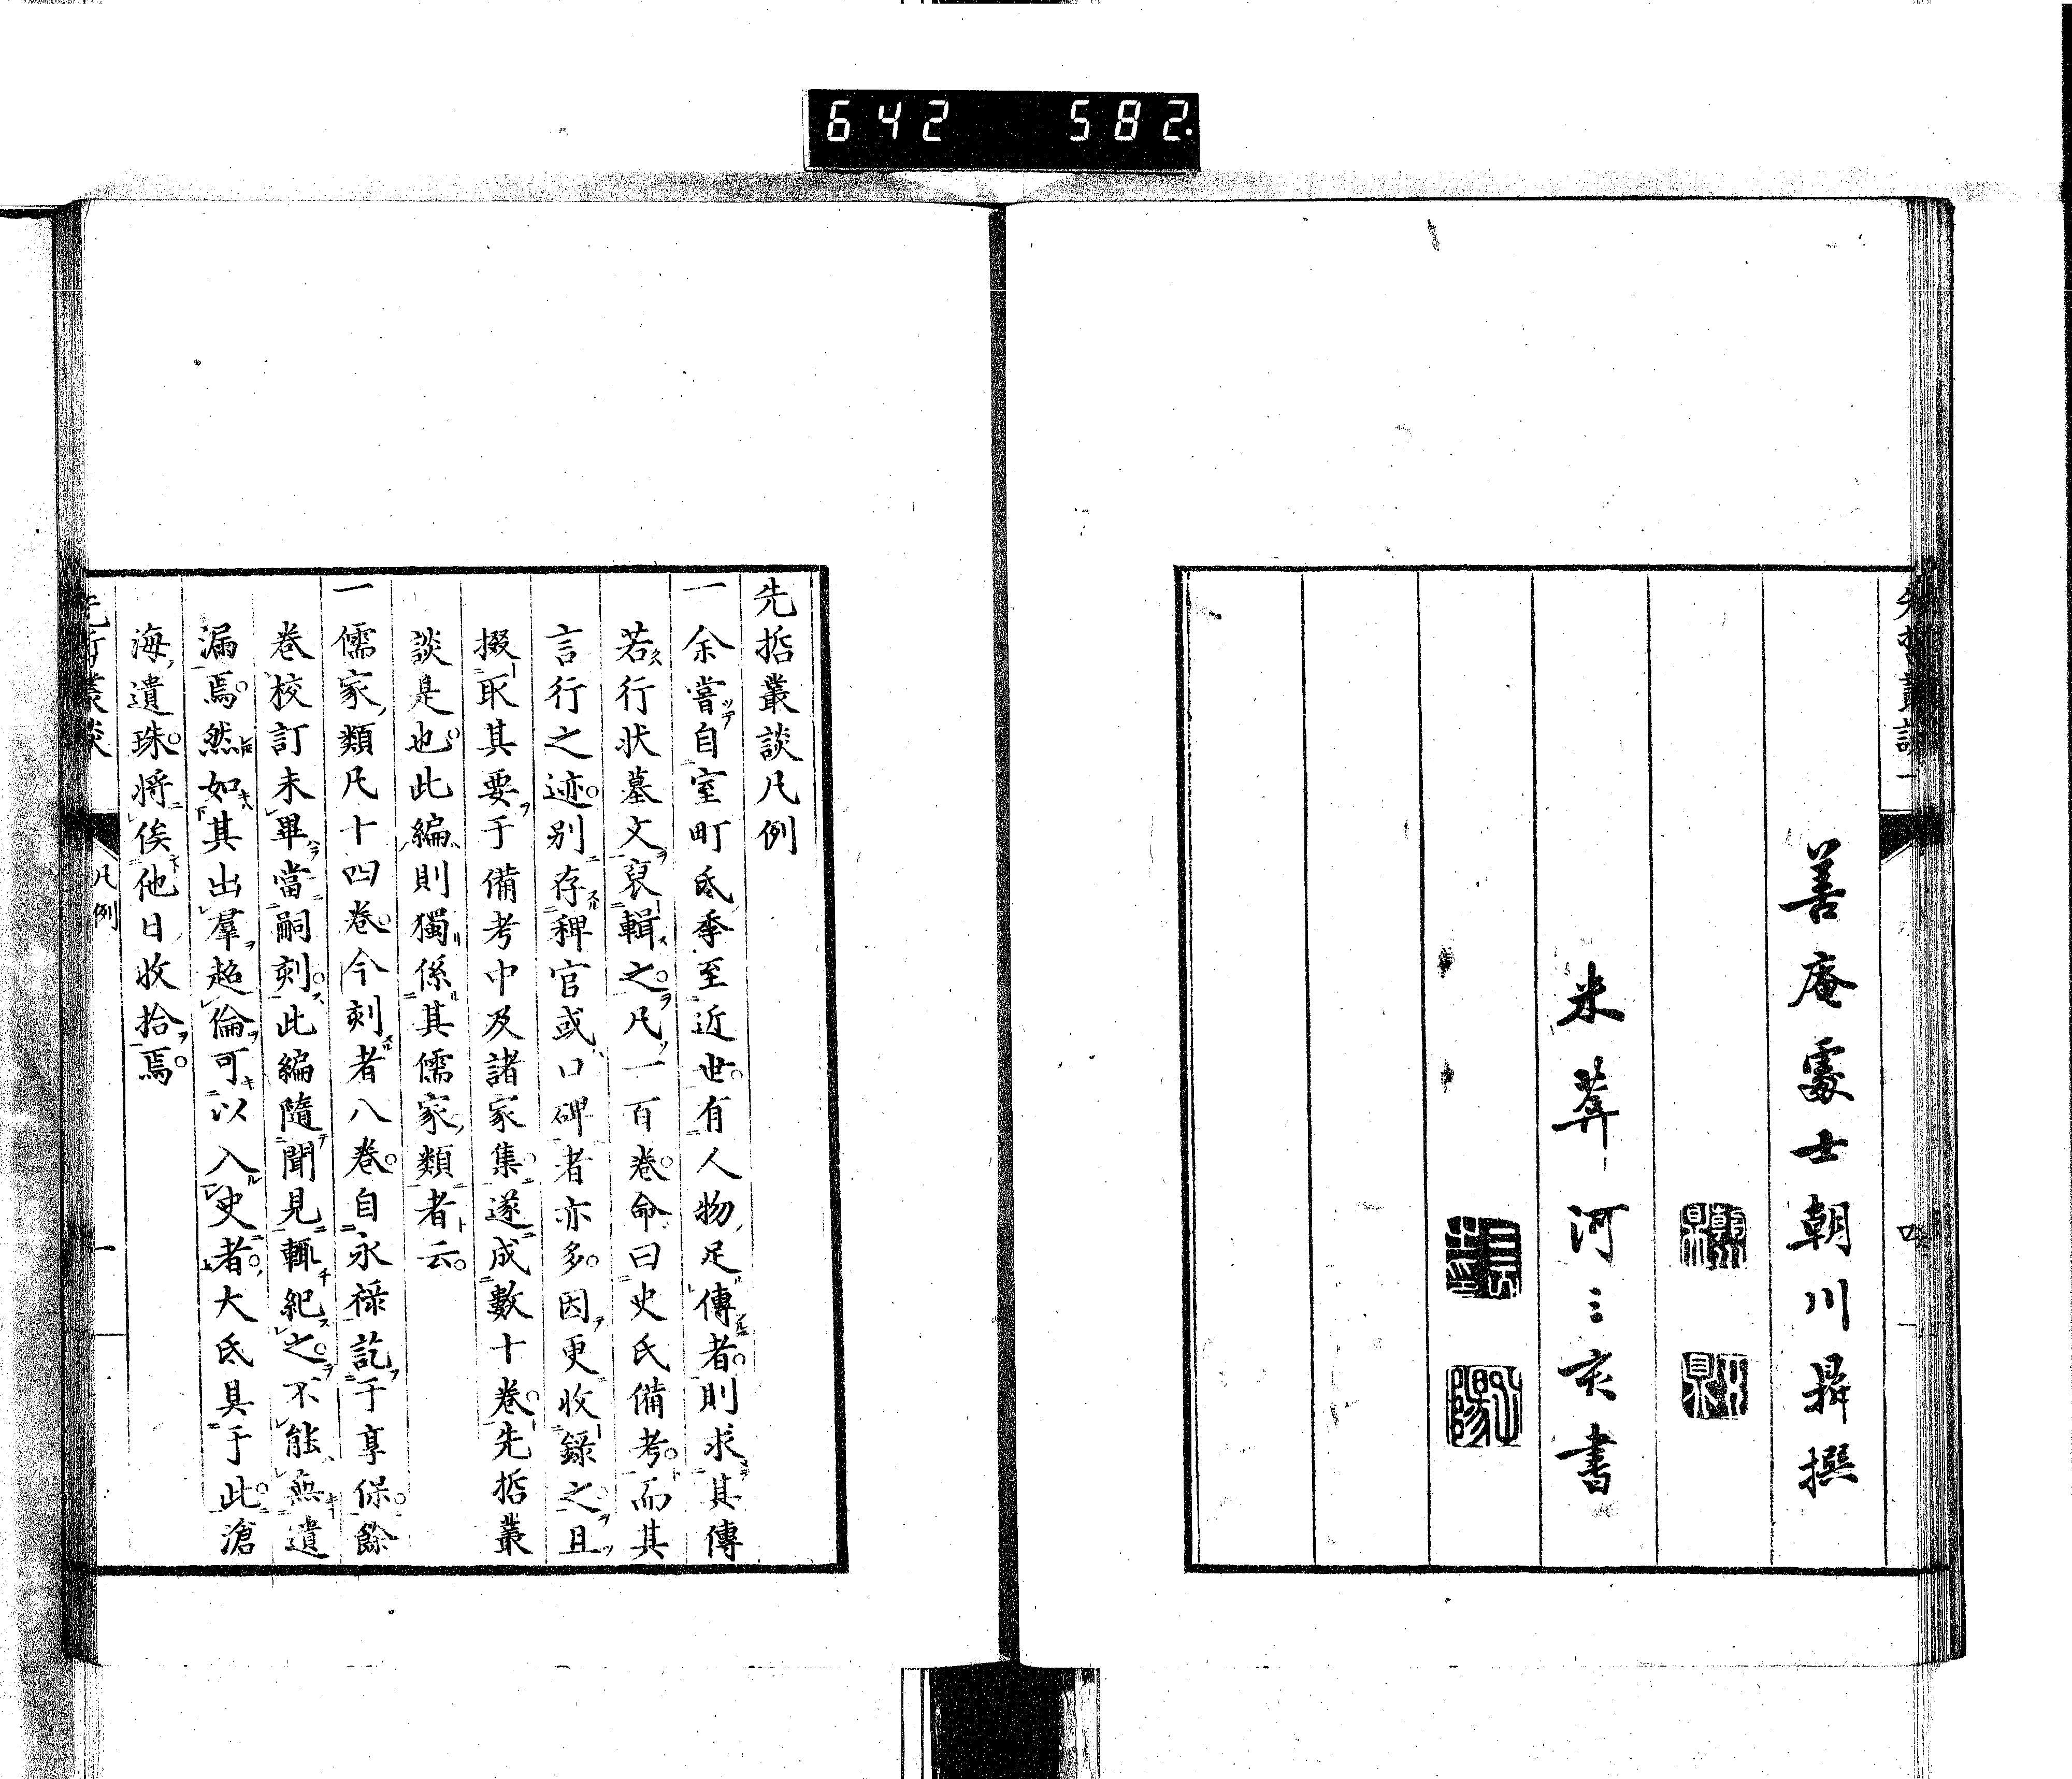 642 582.
善庵處士朝川鼎撰
米葊河三亥書
先哲叢談凡例
一余嘗自室町氐季至近世有人物足傳者則求其傳
若行狀墓文裒輯之凡一百卷命曰史氏備考而其
言行之迹別存稗官或口碑者亦多因更收錄之且
掇取其要于備考中及諸家集遂成數十卷先哲叢
談是也此編則獨係其儒家類者云
一儒家類凡十四卷今刻者八卷自永祿訖于享保餘
卷校訂未畢當嗣刻此編隨聞見輒紀之不能無遺
漏焉然如其出羣超倫可以入史者大氐具于此滄
海遺珠將俟他日收拾焉
凡例
一